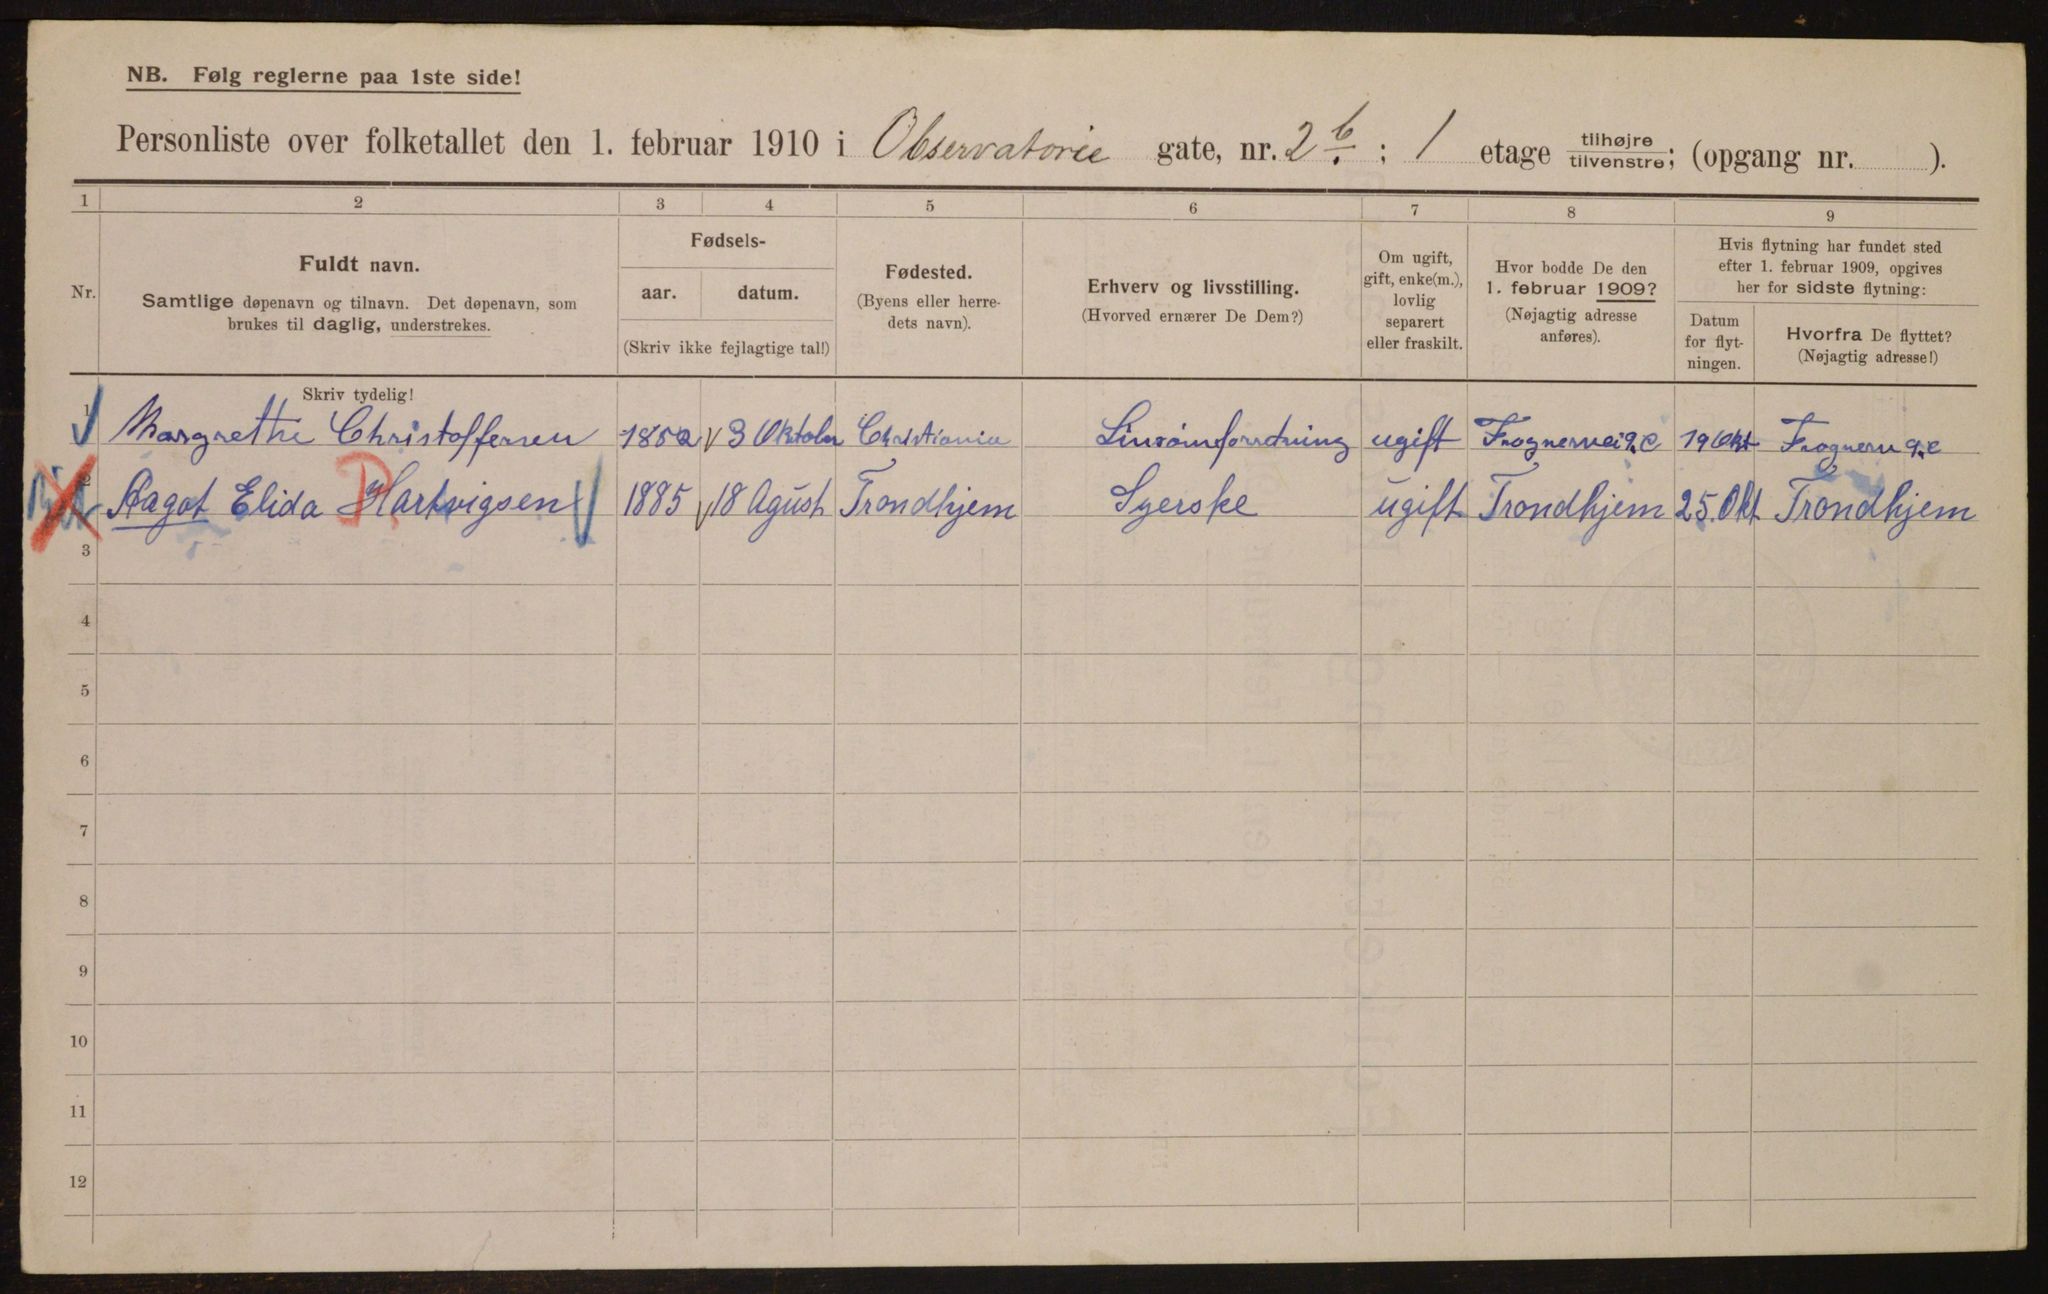 NB. Følg reglerne paa 1ste side!
Personliste over folketallet den 1. februar 1910 i Observatorie gate, nr. 2 b. ; 1 etage tilhøjre tilvenstre; (opgang nr. ).
1 2 3 4 5 6 7 8 9
Nr.
Fuldt navn.
Samtlige døpenavn og tilnavn. Det døpenavn, som
brukes til daglig, understrekes.
Fødsels-
aar. datum.
(Skriv ikke fejlagtige tal!)
Fødested.
(Byens eller herre-
dets navn).
Erhverv og livsstilling.
(Hvorved ernærer De Dem?)
Om ugift,
gift, enke(m.),
lovlig
separert
eller fraskilt.
Hvor bodde De den
1. februar 1909?
(Nøjagtig adresse
anføres).
Hvis flytning har fundet sted
efter 1. februar 1909, opgives
her for sidste flytning:
Datum
for flyt-
ningen.
Hvorfra De flyttet?
(Nøjagtig adresse!)
Skriv tydelig!
1 Margrethe Christoffersen 3 Oktober Christiania ugift 19 Okt
2 Aagot Elida Hartvigsen 1885 18 Agust Trondhjem Syerske ugift Trondhjem 25. Okt Trondhjem
3
4
5
6
7
8
9
10
11
12